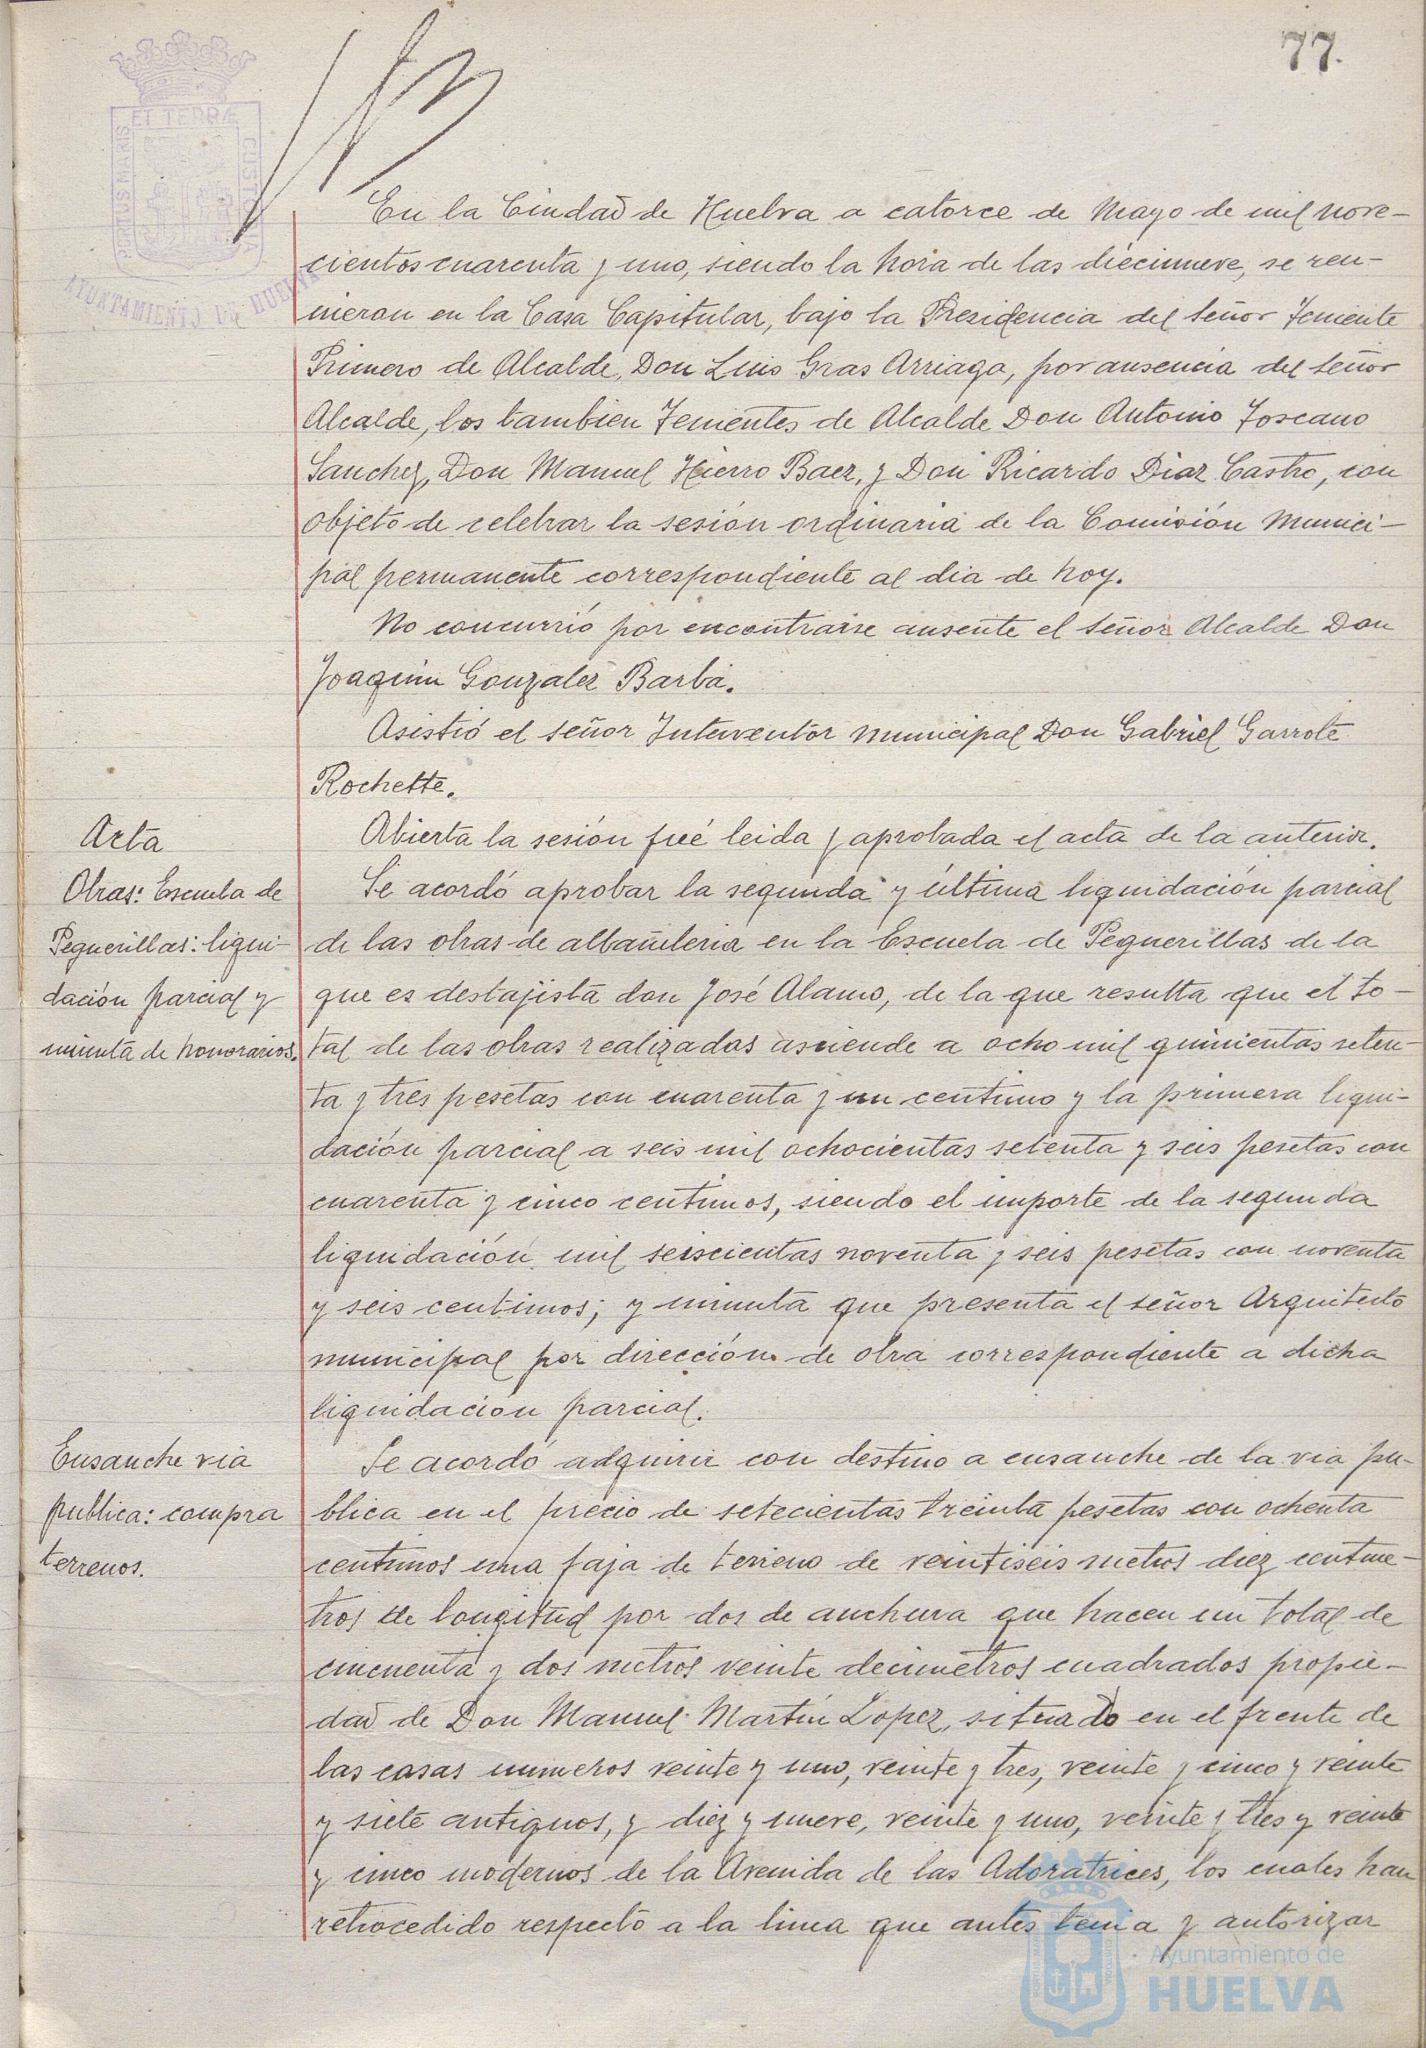 77.
PORTUS MARIS ET TERRÆ CUSTODIA
AYUNTAMIENTO DE HUELVA
En la Ciudad de Huelva a catorce de Mayo de mil nove-
cientos cuarenta y uno, siendo la hora de las diecinueve, se reu-
nieron en la Casa Capitular, bajo la Presidencia del Señor Teniente
Primero de Alcalde, Don Luis Gras Arriaga, por ausencia del Señor
Alcalde, los tambien Tenientes de Alcalde Don Antonio Toscano
Sanchez, Don Manuel Hierro Baez, y Don Ricardo Diaz Castro, con
objeto de celebrar la sesión ordinaria de la Comisión Munici-
pal permanente correspondiente al dia de hoy.
No concurrió por encontrarse ausente el Señor Alcalde Don
Joaquin Gonzalez Barba.
Asistió el señor Interventor Municipal Don Gabriel Garrote
Rochette.
Acta
Abierta la sesión fué leida y aprobada el acta de la anterior.
Obras: Escuela de
Peguerillas: liqui-
dación parcial y
minuta de honorarios.
Se acordó aprobar la segunda y última liquidación parcial
de las obras de albañileria en la Escuela de Peguerillas de la
que es destajista don José Alamo, de la que resulta que el to-
tal de las obras realizadas asciende a ocho mil quinientas seten-
ta y tres pesetas con cuarenta y un centimo y la primera liqui-
dación parcial a seis mil ochocientas setenta y seis pesetas con
cuarenta y cinco centimos, siendo el importe de la segunda
liquidación mil seiscientas noventa y seis pesetas con noventa
y seis centimos; y minuta que presenta el señor Arquitecto
municipal por dirección de obra correspondiente a dicha
liquidación parcial.
Ensanche via
publica: compra
terrenos.
Se acordó adquirir con destino a ensanche de la via pu-
blica en el precio de setecientas treinta pesetas con ochenta
centimos una faja de terreno de veintiseis metros diez centime-
tros de longitud por dos de anchura que hacen un total de
cincuenta y dos metros veinte decimetros cuadrados propie-
dad de Don Manuel Martín Lopez, situado en el frente de
las casas numeros veinte y uno, veinte y tres, veinte y cinco y veinte
y siete antiguos, y diez y nueve, veinte y uno, veinte y tres y veinte
y cinco modernos de la Avenida de las Adoratrices, los cuales han
retrocedido respecto a la linea que antes tenia y autorizar
Ayuntamiento de
HUELVA